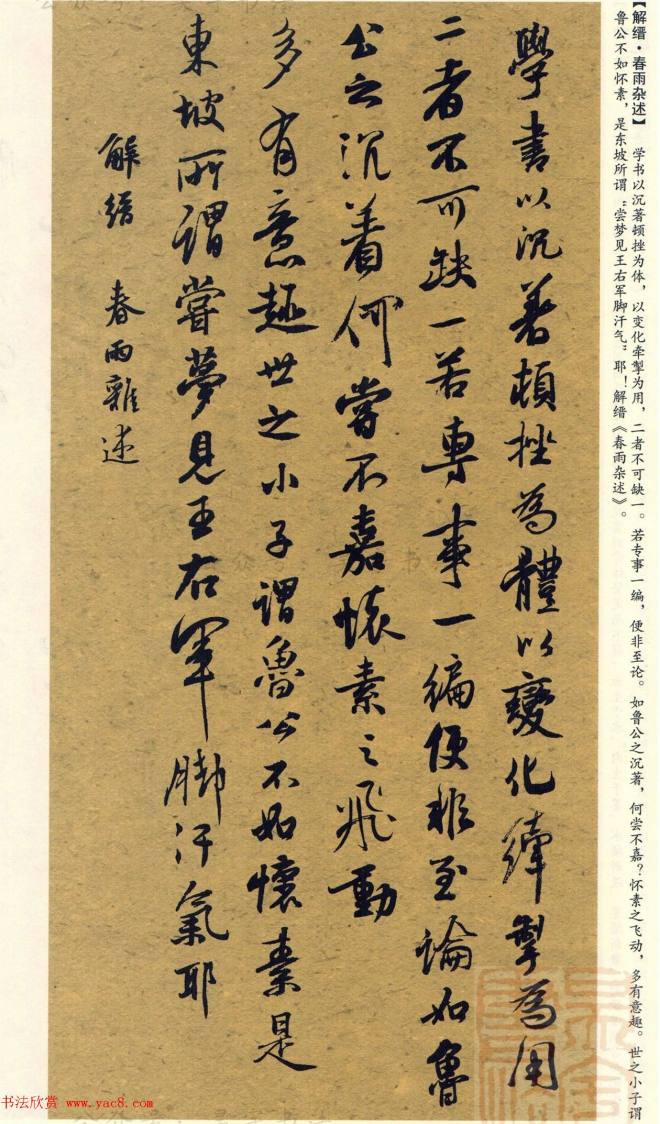 【解缙·春雨杂述】 学书以沉著顿挫为体，以变化牵掣为用，二者不可缺一。若专事一编，便非至论。如鲁公之沉著，何尝不嘉？怀素之飞动，多有意趣。世之小子谓
鲁公不如怀素，是东坡所谓“尝梦见王右军脚汗气”耶！解缙《春雨杂述》。
學書以沉著頓挫為體以變化縴掣為用
二者不可缺一若專事一編便非至論如魯
公之沉着何嘗不嘉懷素之飛動
多有意趣世之小子謂魯公不如懷素是
東坡所謂嘗夢見王右軍脚汗氣耶
解縉 春雨雜述
书法欣赏 www.yac8.com